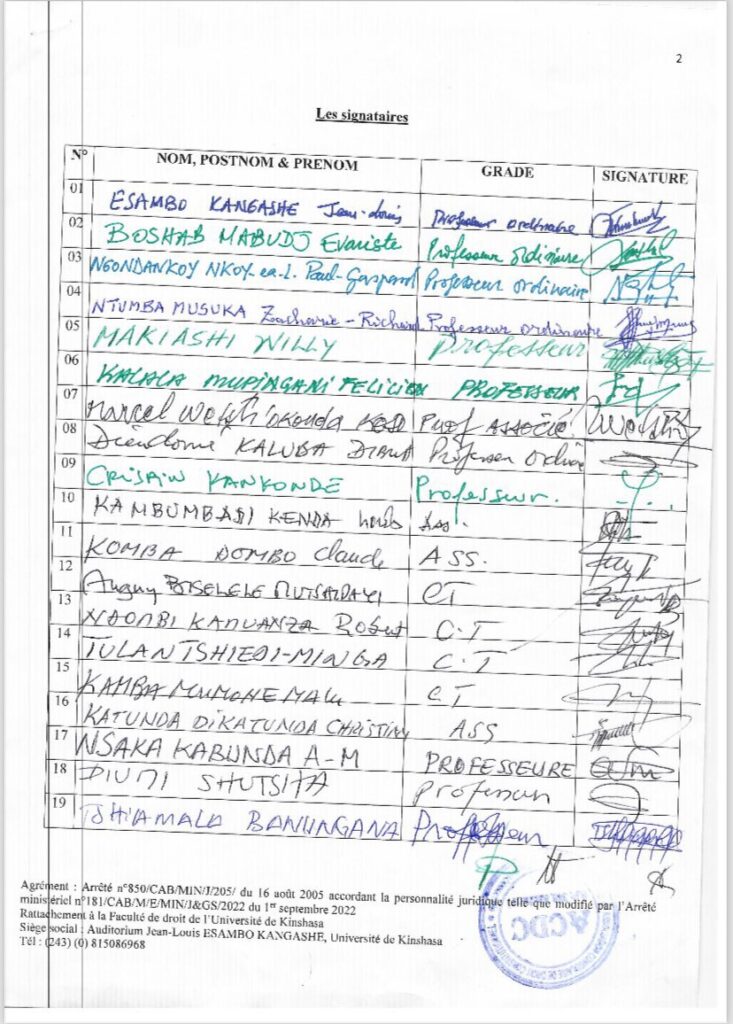 2
Les signataires
N° NOM, POSTNOM & PRENOM GRADE SIGNATURE
01 ESAMBO KANGASHE Jean-Louis Professeur ordinaire
02 BOSHAB MABUDJ Evariste Professeur Ordinaire
03 NGONDANKOY NKOY-ea-L. Paul-Gaspard Professeur ordinaire
04 NTUMBA MUSUKA Zacharie-Richard Professeur ordinaire
05 MAKIASHI WILLY Professeur
06 KALALA MUPINGANI FELICIEN PROFESSEUR
07 Marcel Prof ASSOCIÉ
08 Dieudonné KALUBA Professeur
09 CRISPIN KANKONDE Professeur.
10 KAMBUMBADI KENDA Ass.
11 KOMBA DOMBO Claude ASS.
12 CT
13 Robert C.T
14 TULANTSHIEDI-MINGA C.T
15 KAMBA CT
16 KATUNDA DIKATUNDA CHRISTIN ASS
17 NSAKA KABUNDA A-M PROFESSEURE
18 DIUMI SHUTSHA Professeur
19 TSHIAMALA BANUNGANA Professeur
Agrément : Arrêté n°850/CAB/MIN/J/205/ du 16 août 2005 accordant la personnalité juridique telle que modifié par l'Arrêté
ministériel n°181/CAB/M/E/MIN/J&GS/2022 du 1er septembre 2022
Rattachement à la Faculté de droit de l'Université de Kinshasa
Siège social : Auditorium Jean-Louis ESAMBO KANGASHE, Université de Kinshasa
Tél : (243) (0) 815086968
ACDC